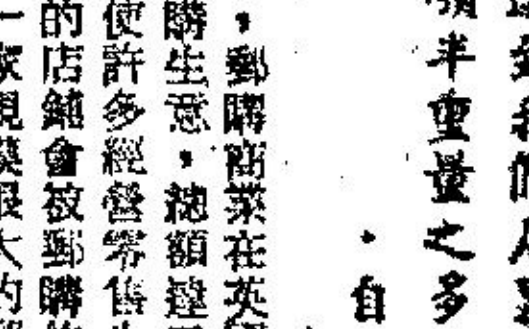 半重量之多
・自
，郵購商業在英
購生意，總額達
使許多經營零售
的店鋪會被郵購
一家規模很大的